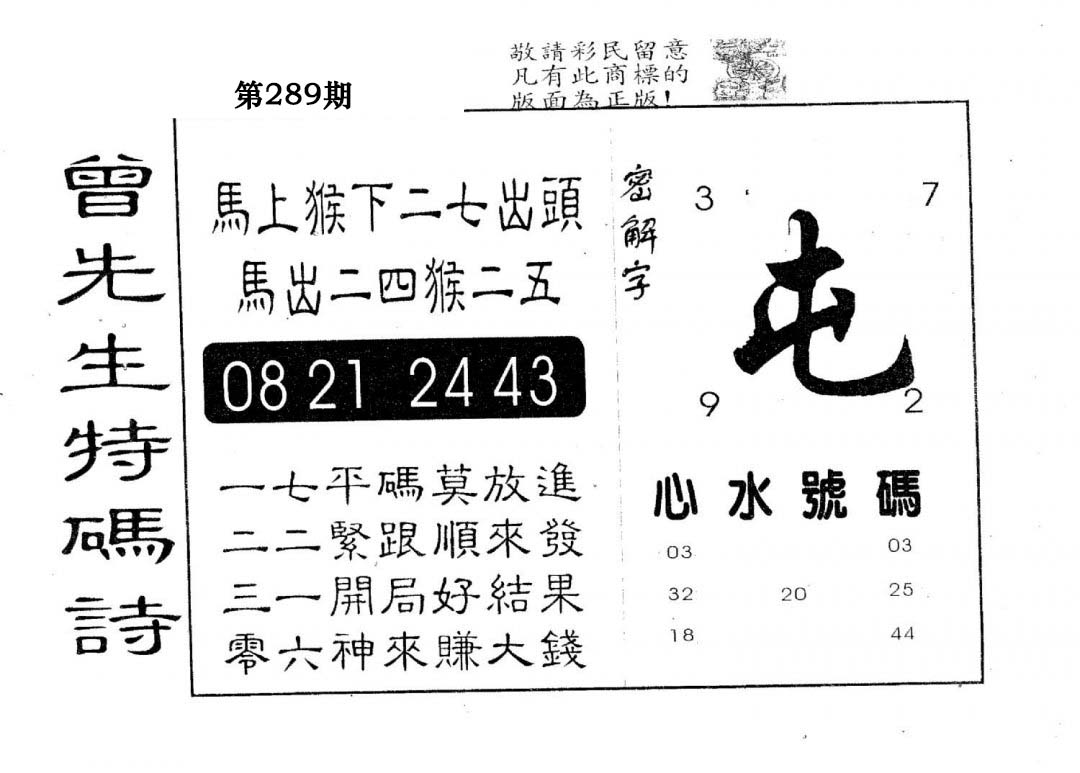 敬請彩民留意
凡有此商標的
版面為正版!
第289期
曾先生特碼詩
馬上猴下二七出頭
馬出二四猴二五
08 21 24 43
一七平碼莫放進
二二緊跟順來發
三一開局好結果
零六神來賺大錢
密解字
3 7
屯
9 2
心水號碼
03 03
32 20 25
18 44